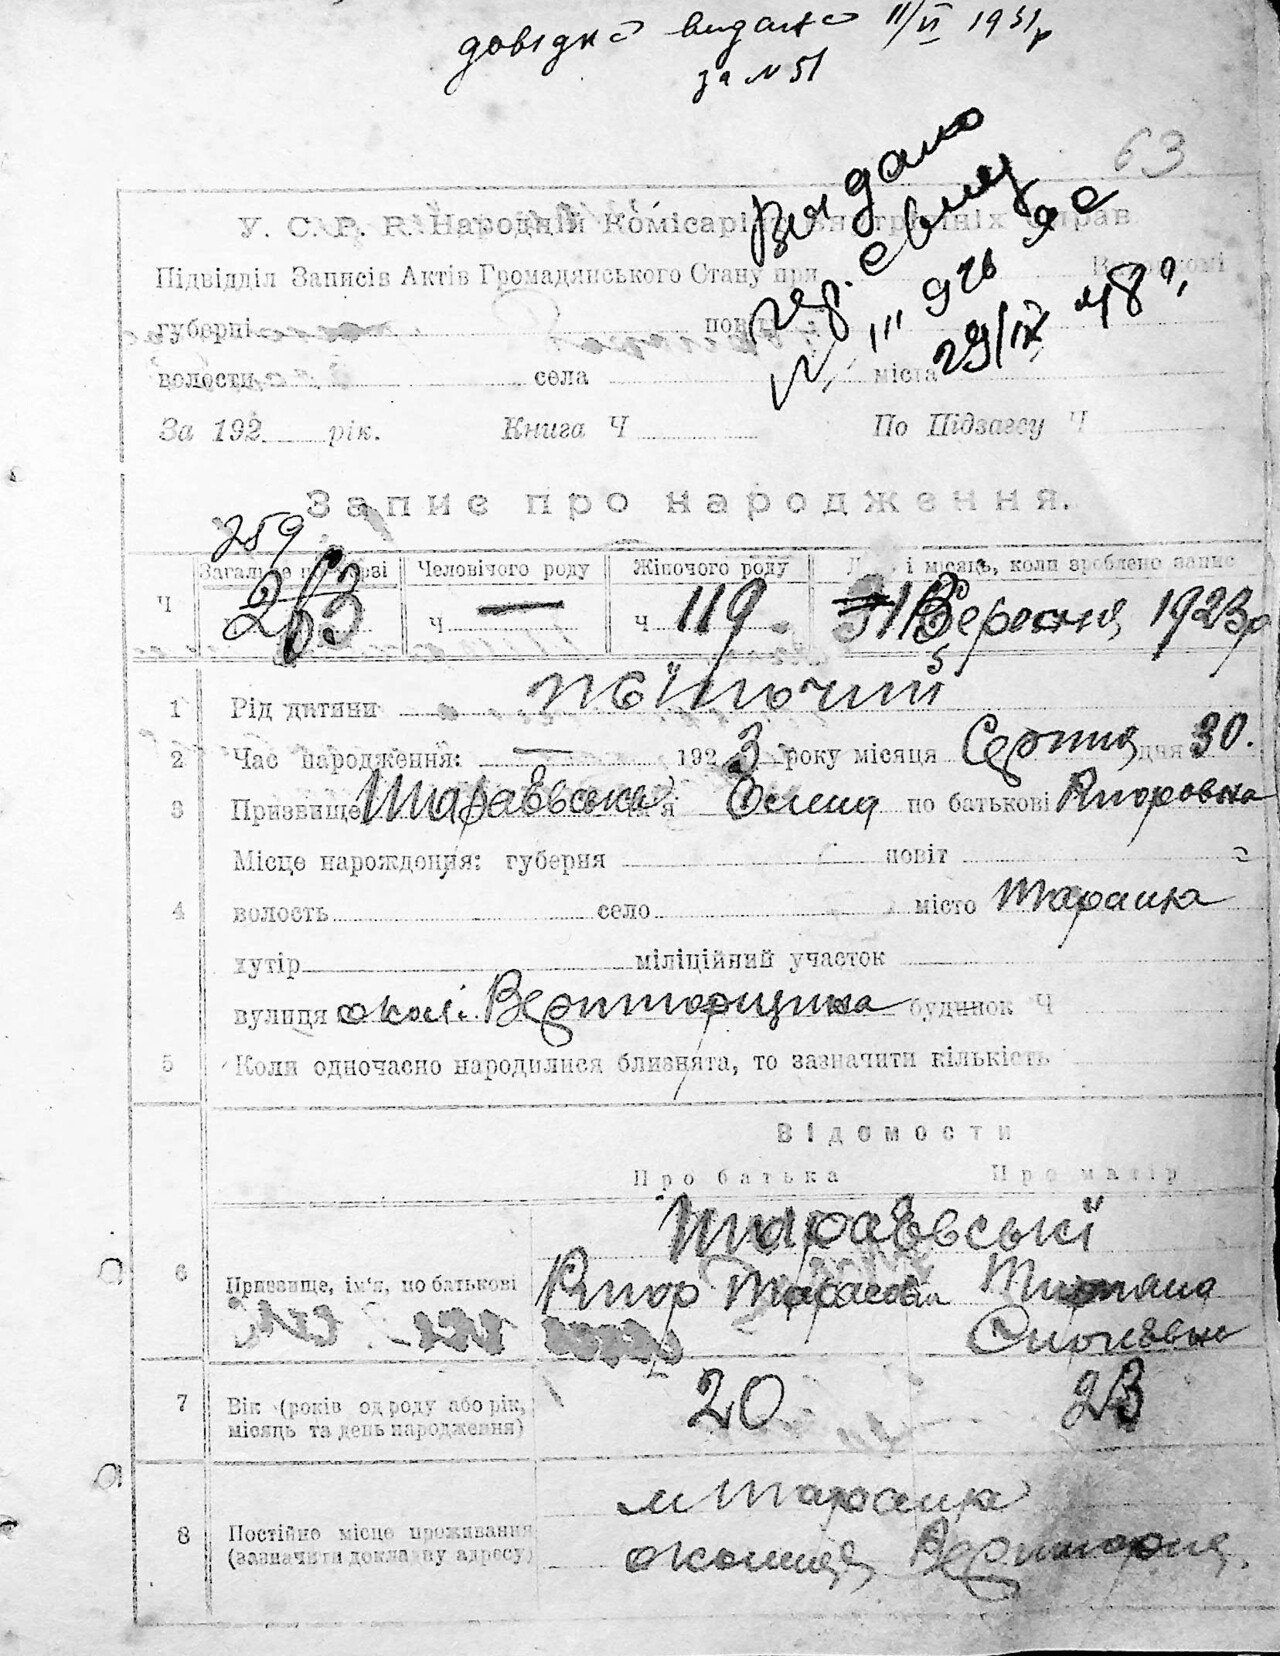 довідка видана 11/VI 1951р
за № 51
63
Видано
29/IX 48
У. С. Р. Р. Народній Комісарі Внутрішніх Справ
Підвідділ Записів Актів Громадянського Стану при
губерні пов
волости села міста
За 192 рік. Книга Ч По Підзагсу Ч
Запис про народження.
259
Загальне Человічого роду Жіночого роду і місяць, коли зроблено запис
Ч 263 Ч — Ч 119. Вересня 1923р
1 Рід дитини жіночий
2 Час народження: — 1923 року місяця Серпня дня 30.
3 Призвище Тараєвська по батькові Ягоровна
Місце нарождення: губерня повіт
4 волость село місто Тараща
хутір міліційний участок
вулиця будинок Ч
5 Коли одночасно народилися близнята, то зазначити кількість
Відомости
Про батька Про матір
Тараєвські
6 Призвище, ім'я, по батькові Ягор Тарасови Титяна
7 Вік (років од роду або рік, місяць та день народження) 20 23
м Тараща
8 Постійно місце проживання (зазначити докладну адресу)
околиця